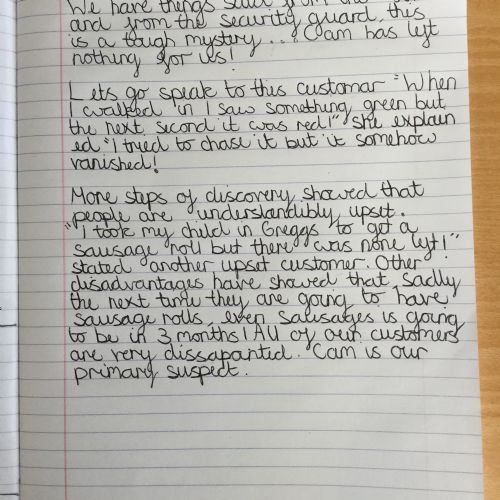 We have things said from the
and from the security guard, this
is a tough mystery... Cam has left
nothing for us!
Lets go speak to this customar "When
I walked in I saw something green but
the next second it was red!" she explain
ed "I tried to chase it but it somehow
vanished!
More steps of discovery showed that
people are understandibly upset.
"I took my child in Greggs to get a
sausage roll but there was none left!"
stated another upset customer. Other
disadvantages have showed that sadly
the next time they are going to have
sausage rolls, even sausages is going
to be in 3 months! All of our customers
are very dissapanted. Cam is our
primary suspect.